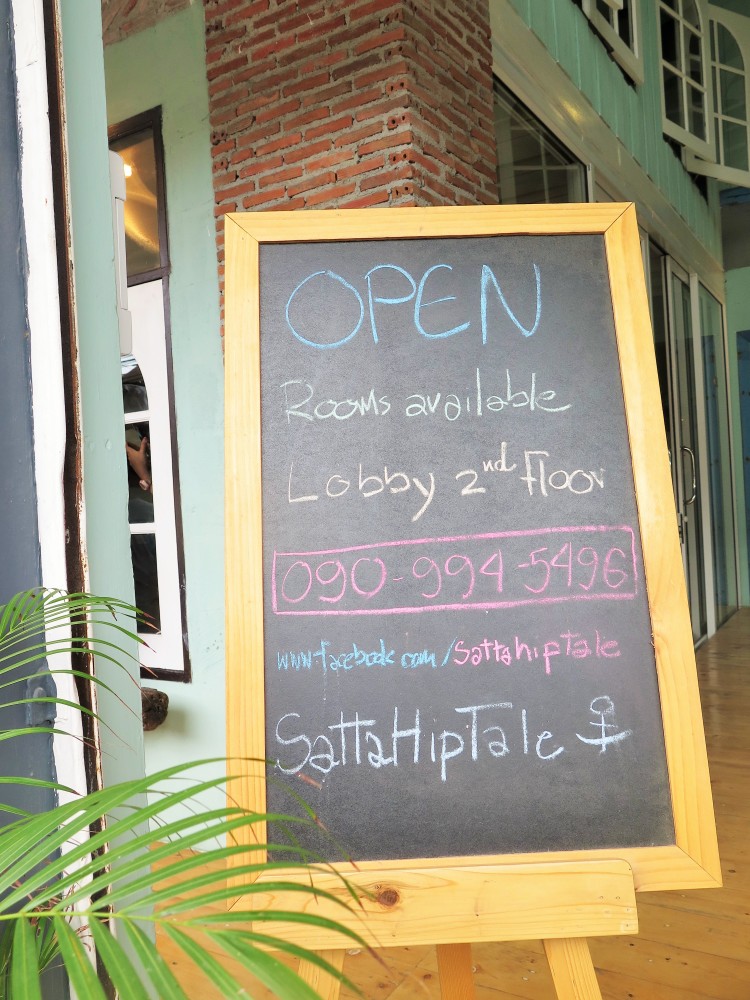 OPEN
Rooms available
Lobby 2nd floor
090-994-5496
www.facebook.com/sattahiptale
SattaHipTale